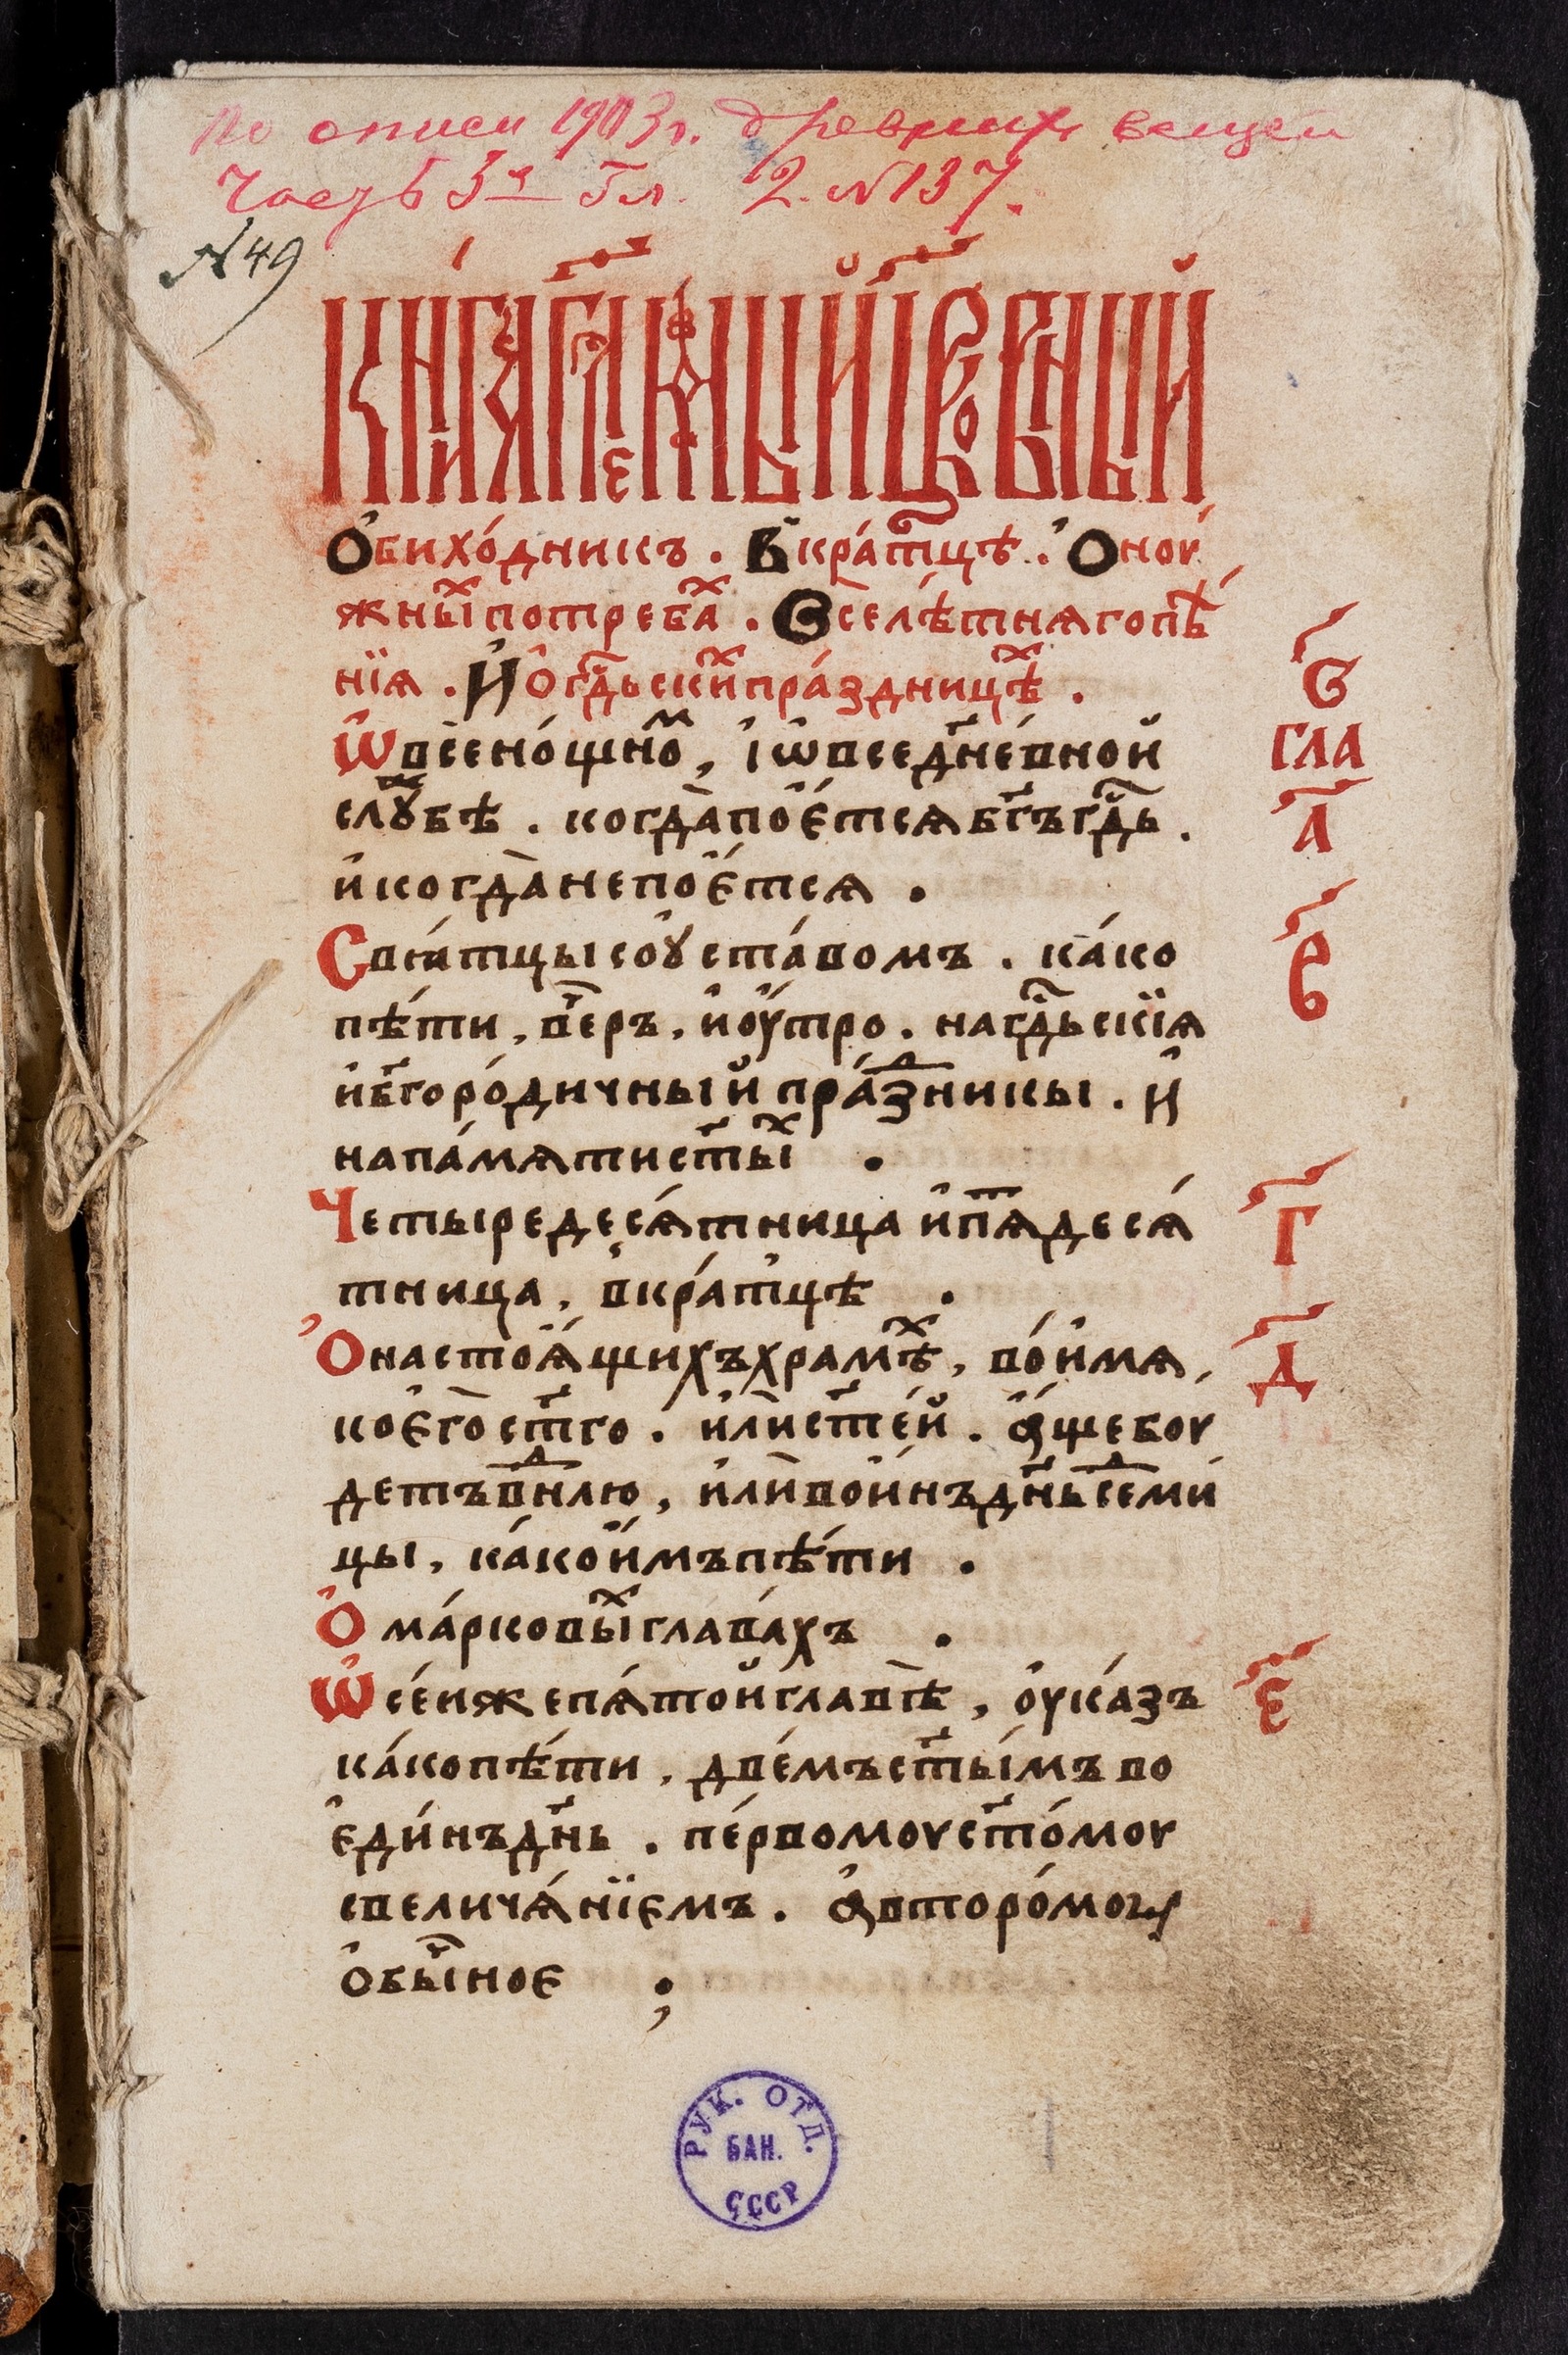 По описи 1903 г. древнихъ вещей
Часть 3я Гл. 2. №137.
№ 49
КНИ́ГА ГЛЕМЫЙ ЦРКОВНЫЙ
Ѻ҆бихо́дникъ . Вкра́тцѣ . Ѻ҆ ноу́
жны̑ⷯ потреба̑ⷯ . Ѡ҆ вселѣ́тнѧго пѣ́
нїѧ . И҆ ѡ҆ гдⷭ҇ьскиⷯ пра́здницѣⷯ .
Ѡ҆ всено́щноⷨ , і҆ ѡ҆ вседн҃е́вной
слꙋⷤбѣ . когда̀ пое҆́тсѧ бг҃ъ гдⷭ҇ь .
и҆ когда̀ не пое҆́тсѧ .
Свѧ́тцы со ᲂу҆ста́вомъ . ка́ко
пѣ́ти , ве́чⷬ҇ръ , и҆ ᲂу҆́тро . на гдⷭ҇ьскїѧ
и҆ бг҃оро́дичный пра́зⷣники . и҆
на па́мѧти ст҃ы́ⷯ .
Четыредесѧ́тница и҆ пѧⷮдесѧ́
тница , вкра́тцѣ .
Ѻ҆ настоѧ́щихъ храмѣⷯ , во и҆́мѧ ,
кое҆го̀ ст҃го . и҆лѝ ст҃е́й . а҆́ще боу́
детъ внⷣлю , и҆лѝ во и҆́нъ дн҃ь сеⷣми́
цы , ка́ко и҆̀мъ пѣ́ти .
Ѻ҆ ма́рковыⷯ глава́хъ .
Ѡ҆ се́й же пѧ́той главѣ̀ , ᲂу҆ка́зъ
ка́ко пѣ́ти , две́мъ ст҃ы́мъ во
е҆ди́нъ дн҃ь . пе́рвомоу ст҃о́моу
с величѧ́нїемъ . а҆ второ́моу
ѻ҆бы́чⷩ҇ное ;
Ѕ҃
гла
а҃
в҃
г҃
д҃
е҃
РУК. ОТД.
БАН.
СССР